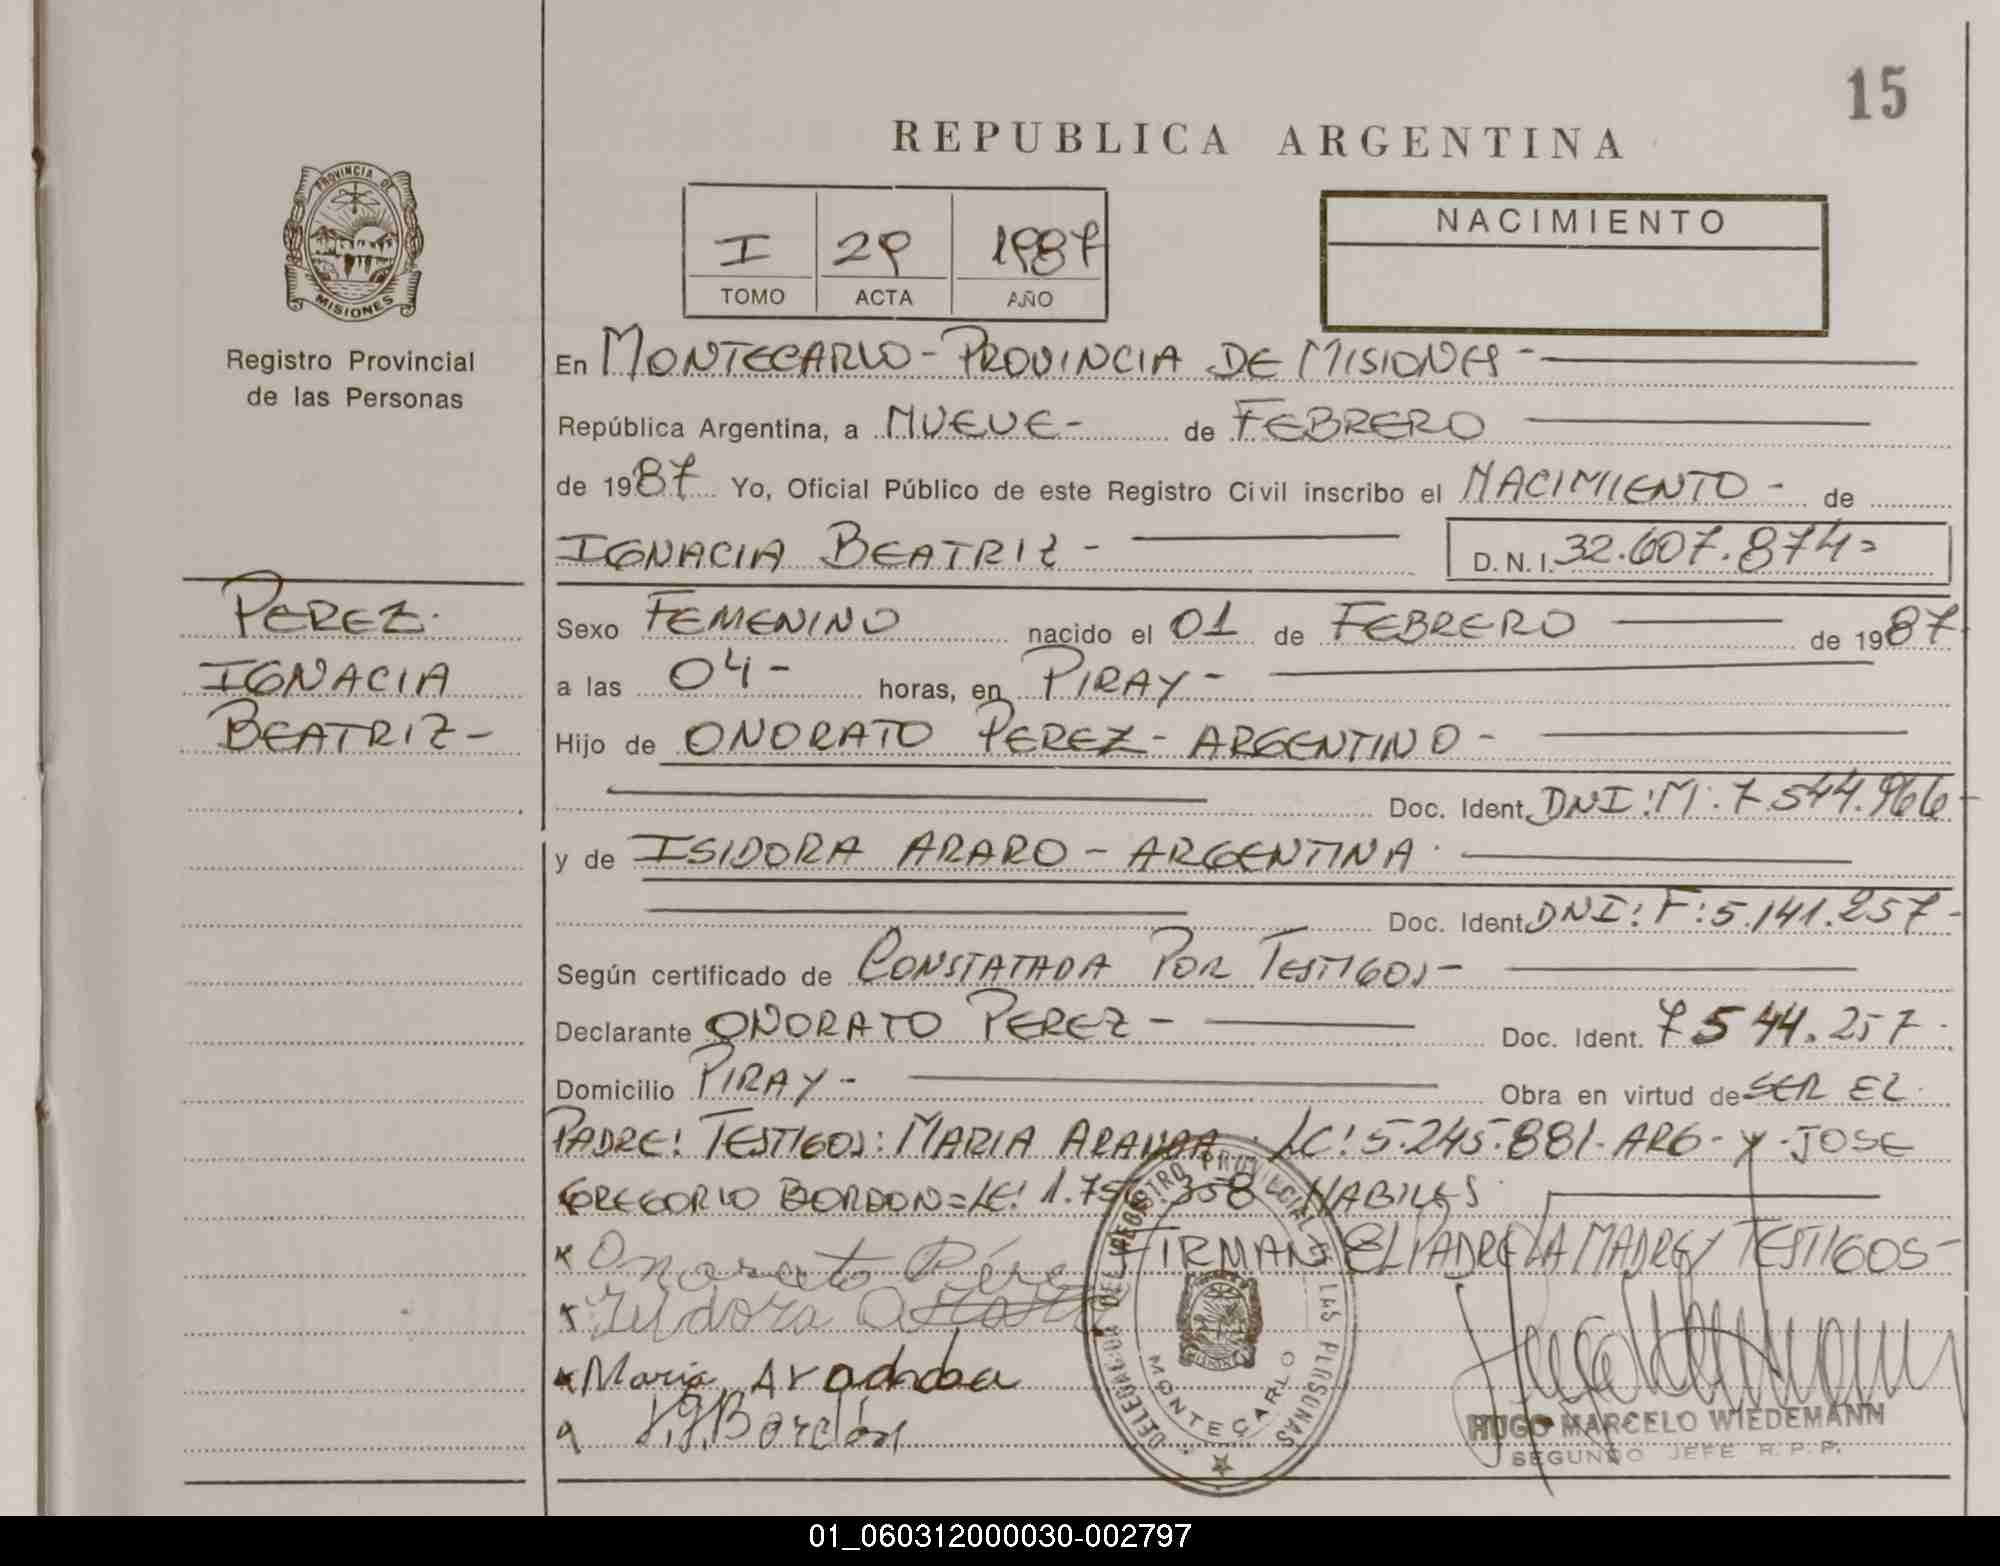 15
REPUBLICA ARGENTINA
PROVINCIA DE
MISIONES
Registro Provincial
de las Personas
I 29 1987
TOMO ACTA AÑO
NACIMIENTO
En MONTECARLO - PROVINCIA DE MISIONES -
República Argentina, a NUEVE - de FEBRERO
de 1987 Yo, Oficial Público de este Registro Civil inscribo el NACIMIENTO - de
IGNACIA BEATRIZ - D. N. I. 32.607.874=
PEREZ.
IGNACIA
BEATRIZ -
Sexo FEMENINO nacido el 01 de FEBRERO de 1987
a las 04 - horas, en PIRAY -
Hijo de ONORATO PEREZ - ARGENTINO -
Doc. Ident. DNI: M: 7.544.966 -
y de ISIDORA ARARO - ARGENTINA.
Doc. Ident. DNI: F: 5.141.257 -
Según certificado de CONSTATADA POR TESTIGOS -
Declarante ONORATO PEREZ - Doc. Ident. 7544.257.
Domicilio PIRAY - Obra en virtud de SER EL
PADRE: TESTIGOS: MARIA ARANDA. LC: 5.245.881 - ARG - y - JOSE
GREGORIO BORDON = LE: 1.756.358 HABILES
FIRMAN EL PADRE LA MADRE Y TESTIGOS -
x Onorato Pérez
x Isidora
x Maria
J.G. Bordón
DELEGACION DEL REGISTRO PROVINCIAL DE LAS PERSONAS
MONTECARLO
HUGO MARCELO WIEDEMANN
SEGUNDO JEFE R. P. P.
01_060312000030-002797